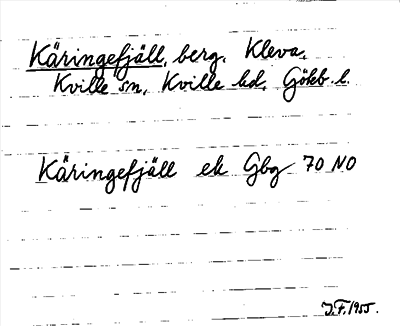 Käringefjäll, berg, Kleva,
Kville sn, Kville hd, Gökb. l.
Käringefjäll ek Gbg 70 NO
J.F. 1955.